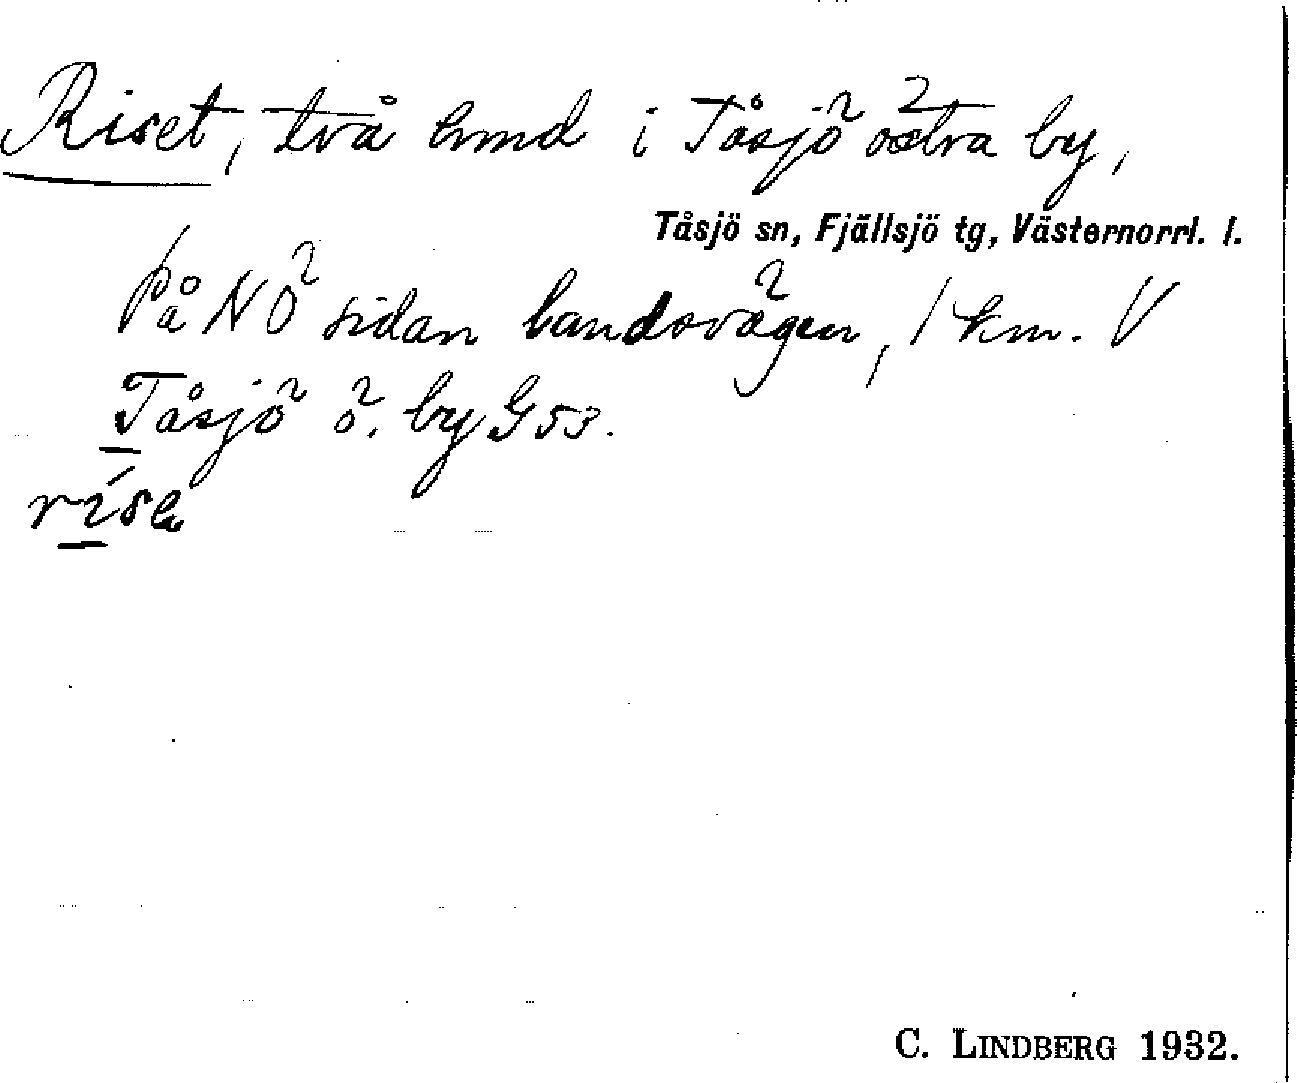 Riset, två hmd i Tåsjö östra by,
Tåsjö sn, Fjällsjö tg, Västernorrl. l.
På NÖ sidan landsvägen, 1 km. V
Tåsjö ö. by G 53.
C. LINDBERG 1932.